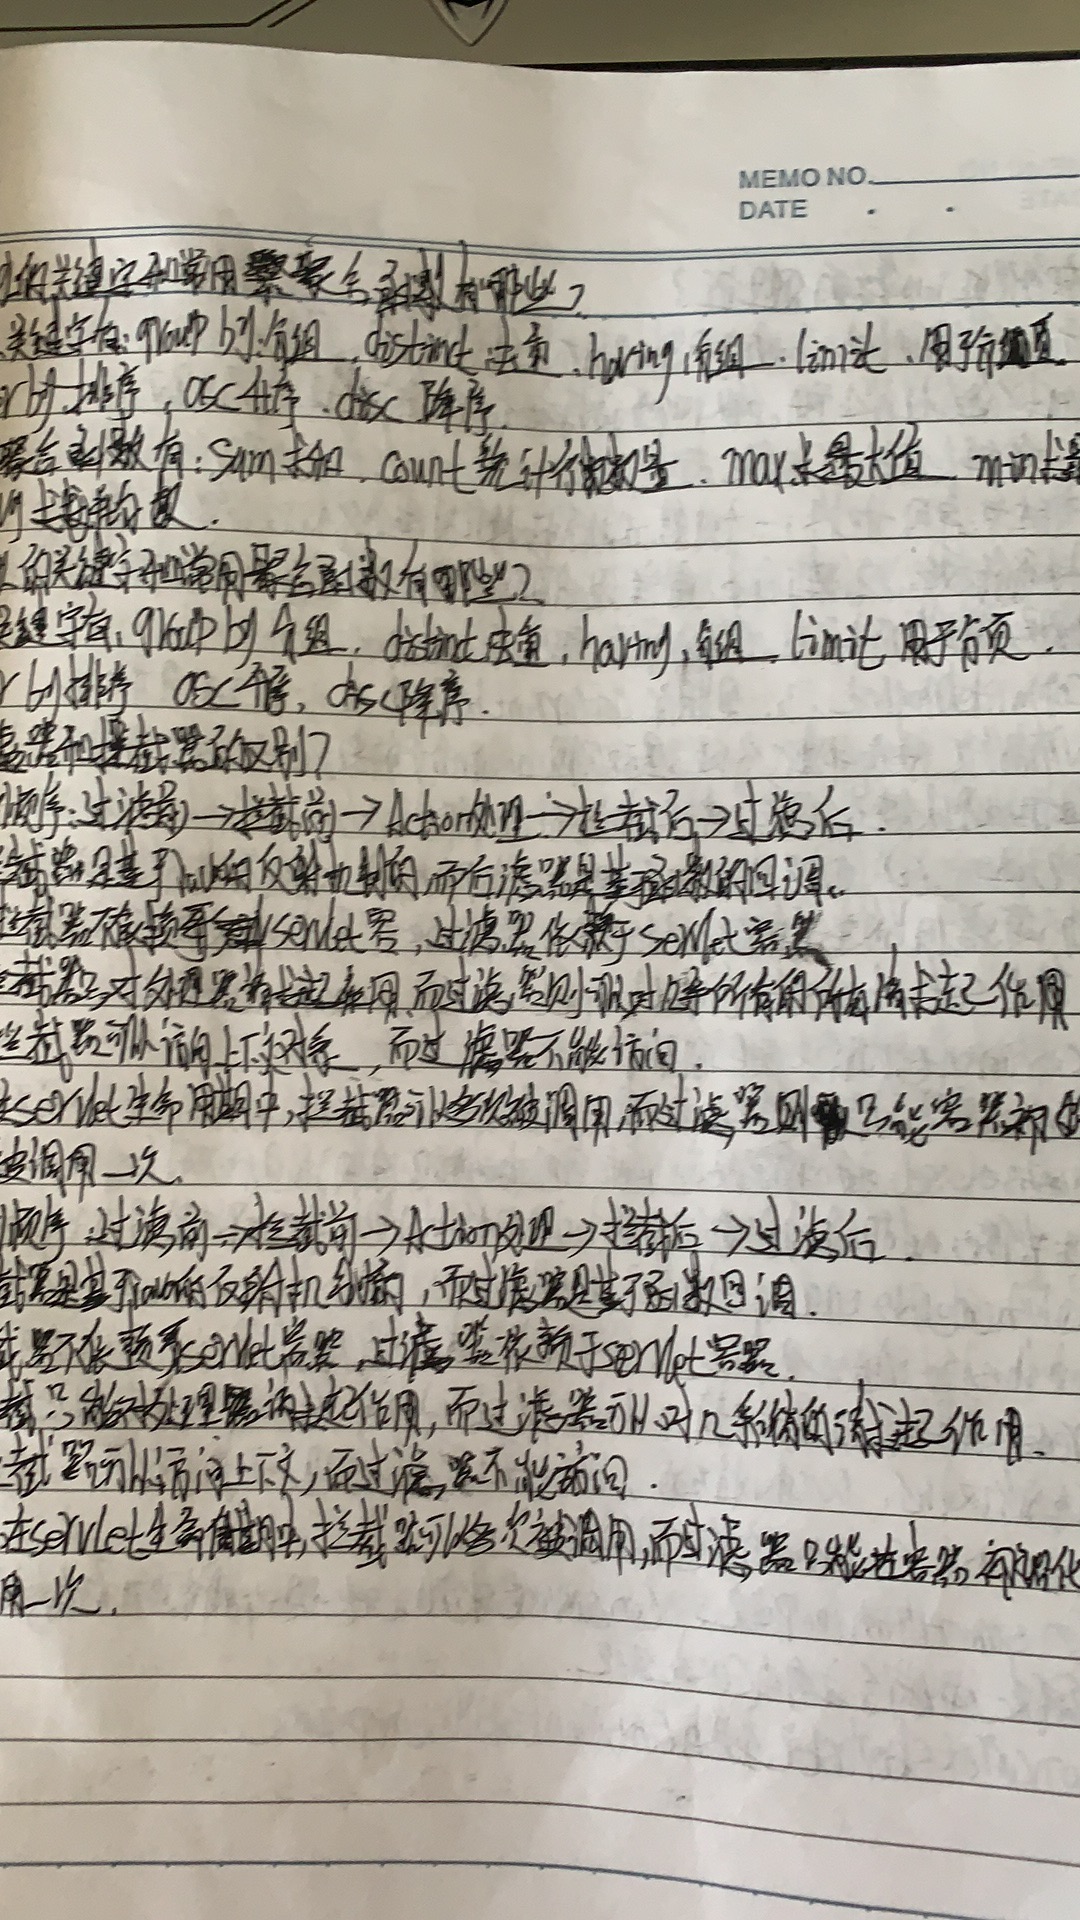 MEMO NO.
DATE
的关键字和常用聚合函数有哪些?
关键字有:group by:分组、distinct去重、having,分组、limit、用于分页
by排序,asc升序、disc降序.
聚合函数有:sum求和、count统计行数量、max求最大值 min求
求平均数.
的关键字和常用聚合函数有哪些?
关键字有,group by分组、distinct去重、having,分组、limit用于分页.
by排序 asc升序,disc降序.
器和拦截器的区别?
顺序:过滤前→拦截前→Action处理→拦截后→过滤后.
截器是基于java的反射机制的,而后滤器是基于函数的回调.
截器不依赖于servlet容,过滤器依赖于servlet容器
截器只对处理器请求起作用,而过滤器则可以对几乎所有的请求起作用
拦截器可以访问上下文对象,而过滤器不能访问.
在servlet生命周期中,拦截器可以多次被调用,而过滤器则只能容器初
被调用一次.
顺序:过滤前→拦截前→Action处理→拦截后→过滤后.
截器是基于java的反射机制的,而过滤器是基于函数回调.
截器不依赖于servlet容器,过滤器依赖于servlet容器.
截只能对处理器请求起作用,而过滤器可以对几乎所有的请求起作用.
截器可以访问上下文,而过滤器不能访问.
在servlet生命周期中,拦截器可以多次被调用,而过滤器只能在容器初始化
用一次.